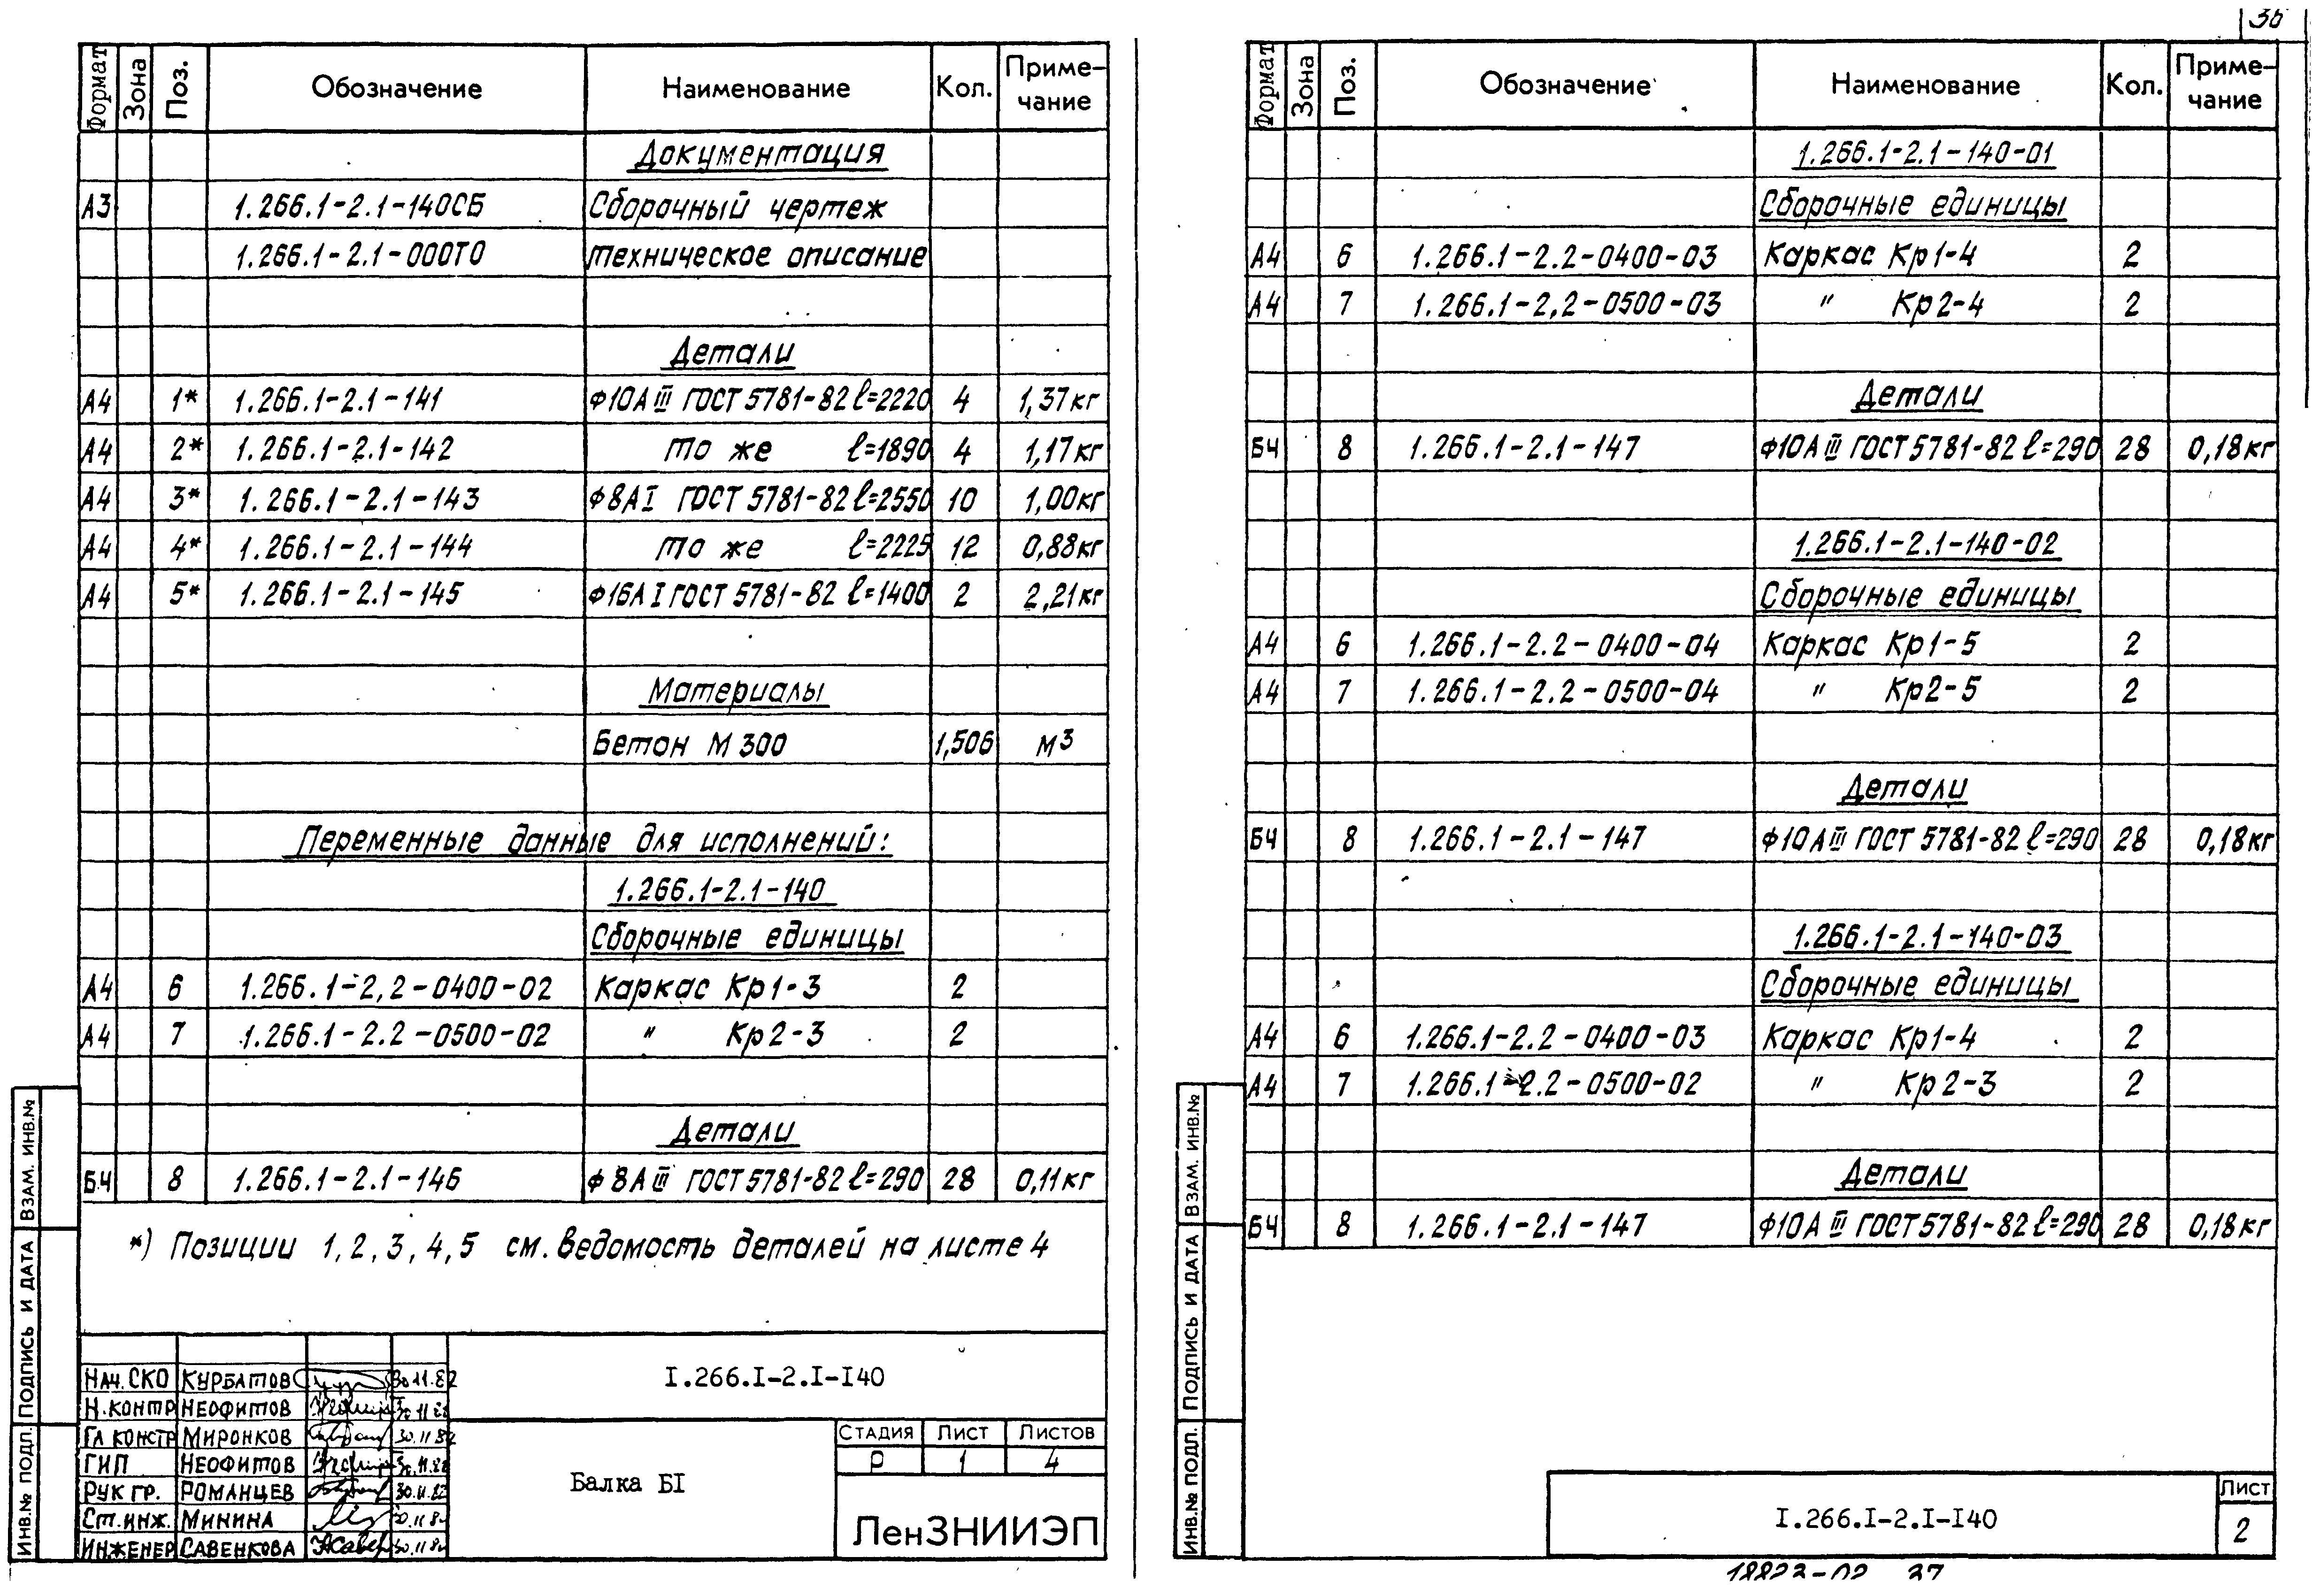 36
Формат Зона Поз. Обозначение Наименование Кол. Приме-чание
Документация
А3 1.266.1-2.1-140СБ Сборочный чертеж
1.266.1-2.1-000ТО Техническое описание
Детали
А4 1* 1.266.1-2.1-141 Ф10АIII ГОСТ 5781-82 ℓ=2220 4 1,37кг
А4 2* 1.266.1-2.1-142 То же ℓ=1890 4 1,17кг
А4 3* 1.266.1-2.1-143 Ф8АI ГОСТ 5781-82 ℓ=2550 10 1,00кг
А4 4* 1.266.1-2.1-144 То же ℓ=2225 12 0,88кг
А4 5* 1.266.1-2.1-145 Ф16АI ГОСТ 5781-82 ℓ=1400 2 2,21кг
Материалы
Бетон М300 1,506 м3
Переменные данные для исполнений:
1.266.1-2.1-140
Сборочные единицы
А4 6 1.266.1-2,2-0400-02 Каркас Кр1-3 2
А4 7 1.266.1-2.2-0500-02 " Кр2-3 2
Детали
БЧ 8 1.266.1-2.1-146 Ф8АIII ГОСТ 5781-82 ℓ=290 28 0,11кг
*) Позиции 1,2,3,4,5 см. ведомость деталей на листе 4
ИНВ.№ ПОДЛ. ПОДПИСЬ И ДАТА ВЗАМ. ИНВ.№
Нач. СКО Курбатов 30.11.82
Н.контр Неофитов 30.11.82
Гл констр Миронков 30.11.82
ГИП Неофитов 30.11.82
Рук гр. Романцев 30.11.82
Ст.инж. Минина 30.11.82
Инженер Савенкова 30.11.82
I.266.I-2.I-I40
Балка БI
Стадия Лист Листов
Р 1 4
ЛенЗНИИЭП
Формат Зона Поз. Обозначение Наименование Кол. Приме-чание
1.266.1-2.1-140-01
Сборочные единицы
А4 6 1.266.1-2.2-0400-03 Каркас Кр1-4 2
А4 7 1.266.1-2,2-0500-03 " Кр2-4 2
Детали
БЧ 8 1.266.1-2.1-147 Ф10АIII ГОСТ 5781-82 ℓ=290 28 0,18кг
1.266.1-2.1-140-02
Сборочные единицы
А4 6 1.266.1-2.2-0400-04 Каркас Кр1-5 2
А4 7 1.266.1-2.2-0500-04 " Кр2-5 2
Детали
БЧ 8 1.266.1-2.1-147 Ф10АIII ГОСТ 5781-82 ℓ=290 28 0,18кг
1.266.1-2.1-140-03
Сборочные единицы
А4 6 1.266.1-2.2-0400-03 Каркас Кр1-4 2
А4 7 1.266.1-2.2-0500-02 " Кр2-3 2
Детали
БЧ 8 1.266.1-2.1-147 Ф10АIII ГОСТ 5781-82 ℓ=290 28 0,18кг
ИНВ.№ ПОДЛ. ПОДПИСЬ И ДАТА ВЗАМ. ИНВ.№
I.266.I-2.I-I40
Лист
2
18823-02 37